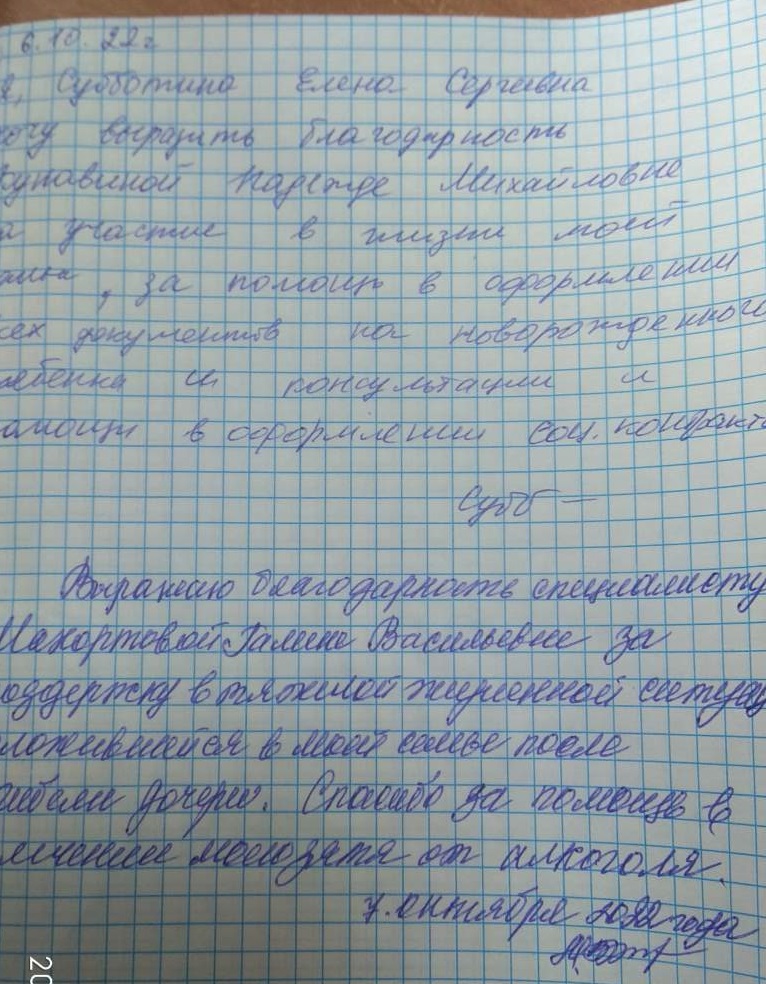 6.10.22г
Я, Субботина Елена Сергеевна
хочу выразить благодарность
Михайловне Надежде
за участие в жизни моей
, за помощь в оформлении
всех документов на новорожденного
ребенка и консультации и
помощи в оформлении соц. контракта
Субб
Выражаю благодарность специалисту
Махортовой Галине Васильевне за
поддержку в тяжелой жизненной ситуац
сложившейся в моей семье после
гибели дочери. Спасибо за помощь в
лечении моего зятя от алкоголя.
7. октября 2022 года
20